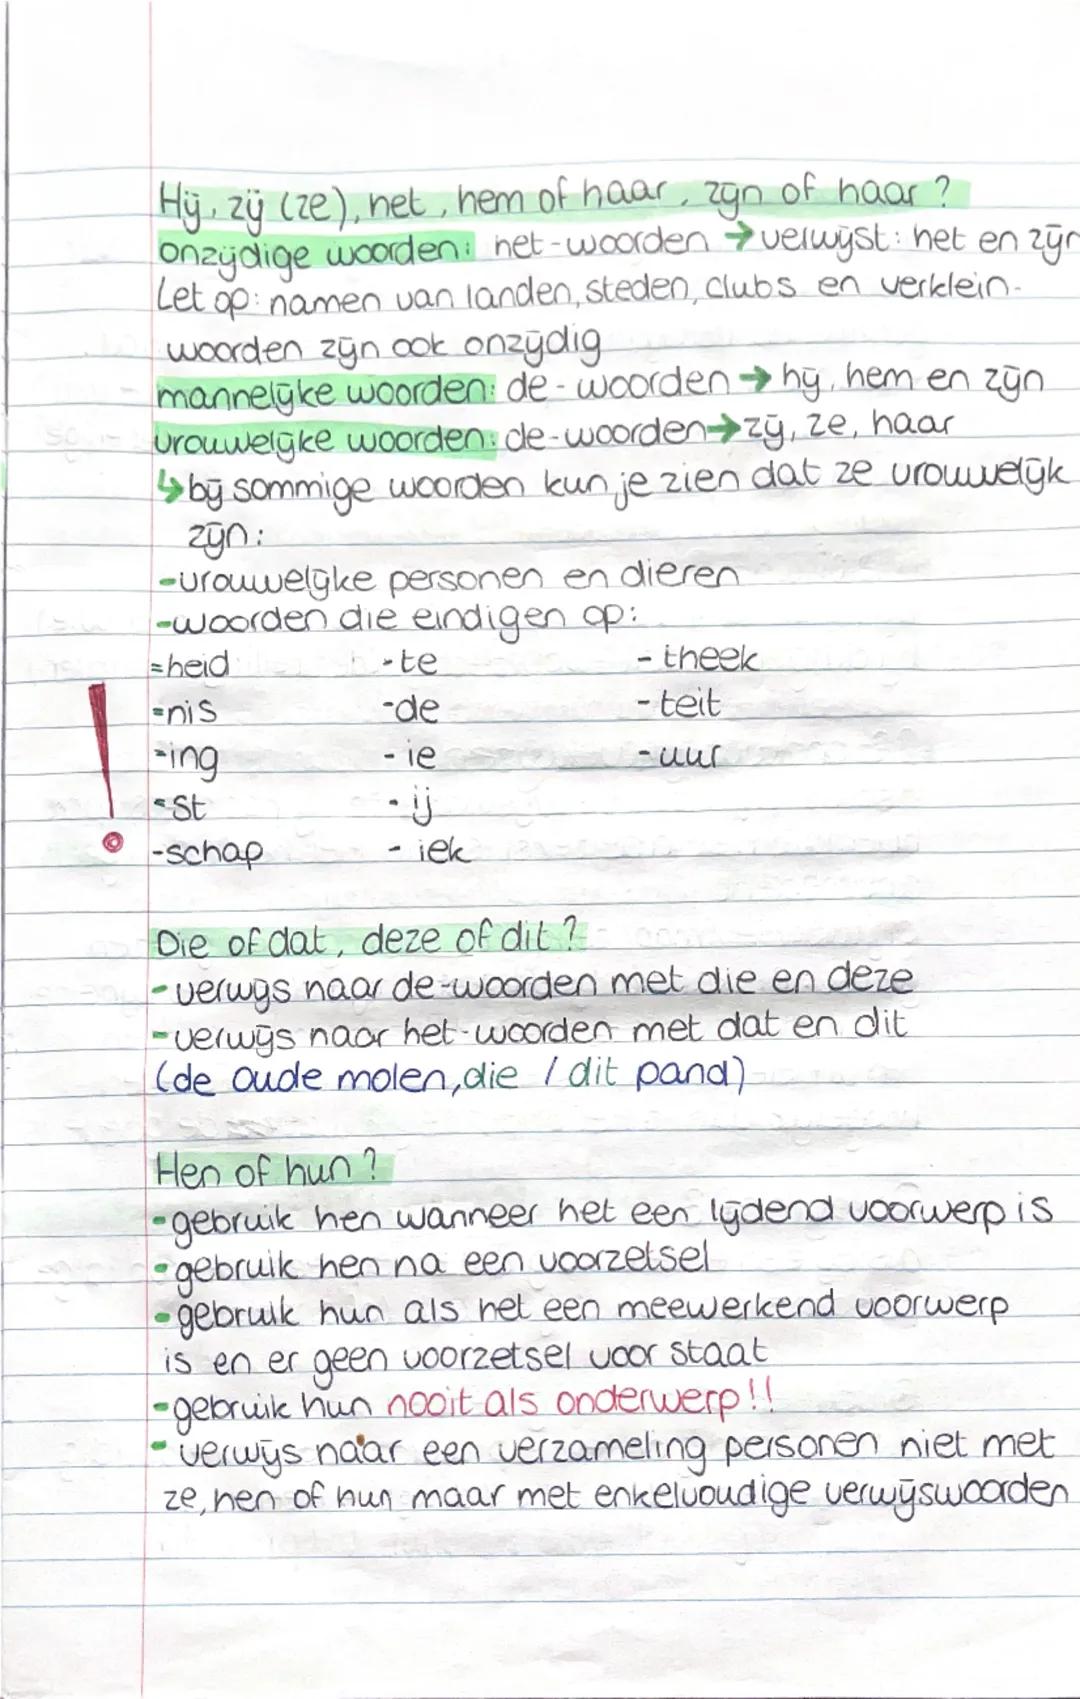 Hij, zij (ze), het, hem of haar, zijn of haar?
onzijdige woorden: het-woorden → verwijst: het en zijn
Let op: namen van landen, steden, clubs en verklein-
woorden zijn ook onzijdig
mannelijke woorden: de-woorden → hij, hem en zijn
vrouwelijke woorden: de-woorden → zij, ze, haar
↳ bij sommige woorden kun je zien dat ze vrouwelijk
zijn:
-vrouwelijke personen en dieren
-woorden die eindigen op:
-heid -te -theek
-nis -de -teit
-ing -ie -uur
-st -ij
! -schap -iek
Die of dat, deze of dit?
-verwijs naar de-woorden met die en deze
-verwijs naar het-woorden met dat en dit
(de oude molen, die / dit pand)
Hen of hun?
-gebruik hen wanneer het een lijdend voorwerp is
-gebruik hen na een voorzetsel
-gebruik hun als het een meewerkend voorwerp
is en er geen voorzetsel voor staat
-gebruik hun nooit als onderwerp!!
-verwijs naar een verzameling personen niet met
ze, hen of hun maar met enkelvoudige verwijswoorden